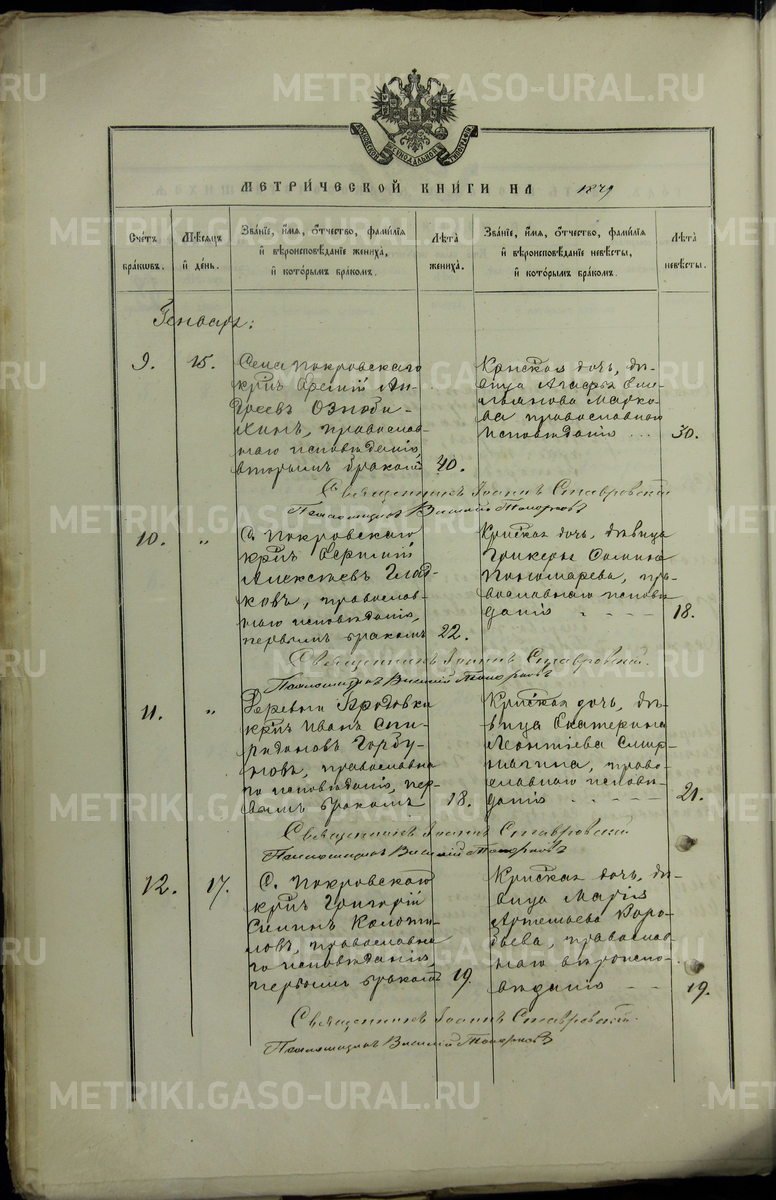 METRIKI.GASO-URAL.RU
МОСКОВСКОЙ СѴНОДАЛЬНОЙ ТИПОГРАФІИ
МЕТРИ́ЧЕСКОЙ КНИ́ГИ НА 1879
Сче́тъ бра́ковъ.
Мѣ́сѧцъ и҆ де́нь.
Зва́нїе, и҆́мѧ, ѻ҆́тчество, фами́лїѧ
и҆ вѣроисповѣ́данїе жениха̀,
и҆ кото́рымъ бра́комъ.
Лѣ̑та жениха̀.
Зва́нїе, и҆́мѧ, ѻ҆́тчество, фами́лїѧ
и҆ вѣроисповѣ́данїе невѣ́сты,
и҆ кото́рымъ бра́комъ.
Лѣ̑та невѣ́сты.
Генварь:
9. 15.
Села Покровскаго
крнъ Арсеній Ан-
дреевъ Озноби-
хинъ, православ-
наго исповѣданія,
вторымъ бракомъ
40.
Крнская дочь, дѣ-
вица Агафья Еме-
льянова Марко-
ва православнаго
исповѣданія ...
30.
Священникъ Іоаннъ Ставровскій
Псаломщикъ Василій Топорковъ
10. "
С. Покровскаго
крнъ Сергій
Алексѣевъ Глад-
ковъ, православ-
наго исповѣданія,
первымъ бракомъ
22.
Крнская дочь, дѣвица
Гликерья Самина
Пономарева, пра-
вославнаго исповѣ-
данія
18.
Священникъ Іоаннъ Ставровскій.
Псаломщикъ Василій Топорковъ
11. "
Деревни
крнъ Иванъ Спи-
ридоновъ Горбу-
новъ, православна
го исповѣданія, пер-
вымъ бракомъ
18.
Крнская дочь, дѣ-
вица Екатерина
Леонтіева Смир-
нягина, право-
славнаго исповѣ-
данія
21.
Священникъ Іоаннъ Ставровскій
Псаломщикъ Василій Топорковъ
12. 17.
С. Покровскаго
крнъ Григорій
Силинъ
православна
го исповѣданія,
первымъ бракомъ
19.
Крнская дочь, дѣ-
вица Марія
Артемьева Воро-
бьева, православ-
наго вѣроиспо-
вѣданія
19.
Священникъ Іоаннъ Ставровскій.
Псаломщикъ Василій Топорковъ
METRIKI.GASO-URAL.RU